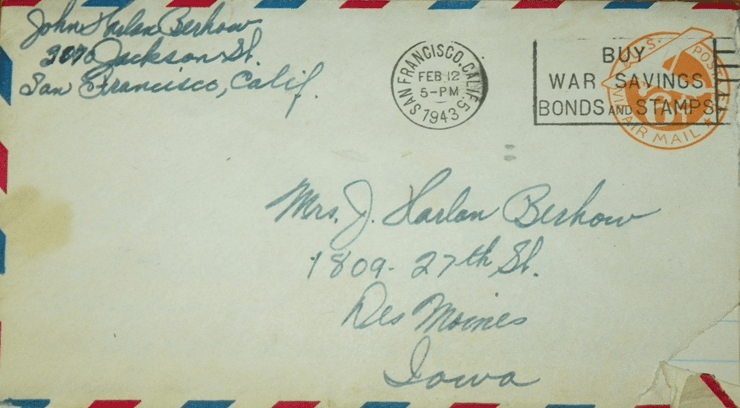 John Harlan Berhow
2070 Jackson St.
San Francisco, Calif.
SAN FRANCISCO, CALIF. 5
FEB 12
5-PM
1943
BUY
WAR SAVINGS
BONDS AND STAMPS
U.S. POSTAGE
6¢
VIA AIR MAIL
Mrs. J. Harlan Berhow
1809-27th St.
Des Moines
Iowa